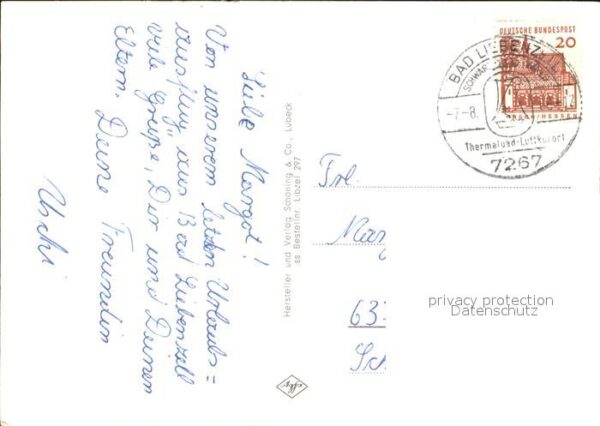 Liebe Margot!
Von unserem letzten Urlaubs=
ausflug aus Bad Liebenzell
viele Grüße, Dir und Deinen
Eltern. Deine Freundin
Uschi
Hersteller und Verlag Schöning & Co., Lübeck
ss Bestellnr. Libzel 297
DEUTSCHE BUNDESPOST
20
BAD LIEBENZELL
-7.-8.
Thermalbad-Luftkurort
7267
Frl.
Mar
63
Sc
privacy protection
Datenschutz